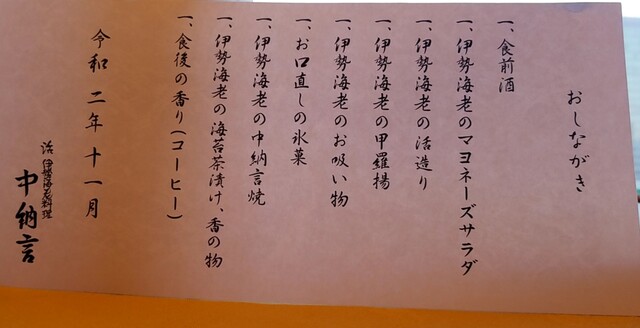 おしながき
一、食前酒
一、伊勢海老のマヨネーズサラダ
一、伊勢海老の活造り
一、伊勢海老の甲羅揚
一、伊勢海老のお吸い物
一、お口直しの氷菓
一、伊勢海老の中納言焼
一、伊勢海老の海苔茶漬け、香の物
一、食後の香り(コーヒー)
令和二年十一月
活伊勢海老料理
中納言